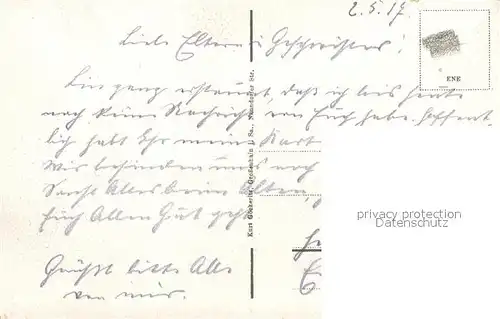 2.5.17.
Liebe Eltern u Geschwister!
Bin ganz erstaunt, daß ich bis heute
noch keine Nachricht von Euch habe. Hoffent-
lich habt Ihr meine Kart
Wir befinden uns noch
Alles beim Alten,
Euch Allen Gut geht
Grüßt bitte Alle
von mir.
ENE
Kurt Göckeritz, Großenhain i. Sa., Naundorfer Str.
privacy protection
Datenschutz